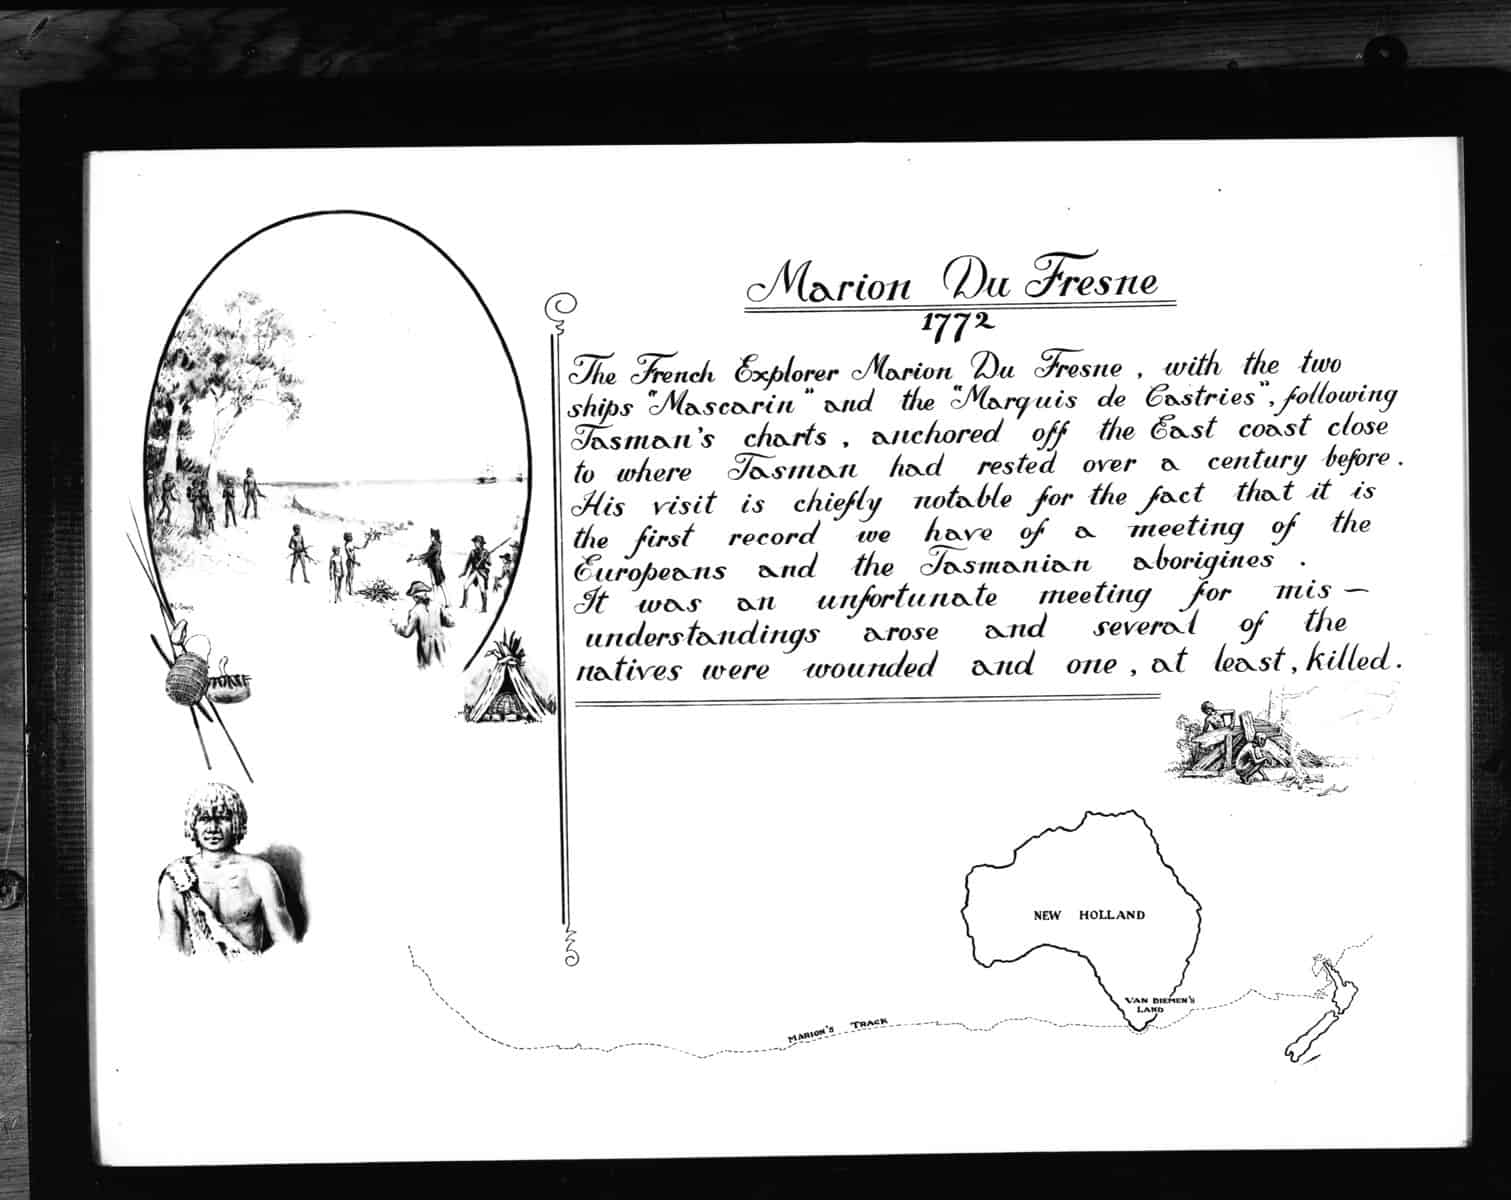 Marion Du Fresne
1772
The French Explorer Marion Du Fresne, with the two
ships "Mascarin" and the "Marquis de Castries", following
Tasman's charts, anchored off the East coast close
to where Tasman had rested over a century before.
His visit is chiefly notable for the fact that it is
the first record we have of a meeting of the
Europeans and the Tasmanian aborigines.
It was an unfortunate meeting for mis-
understandings arose and several of the
natives were wounded and one, at least, killed.
NEW HOLLAND
VAN DIEMEN'S
LAND
MARION'S TRACK